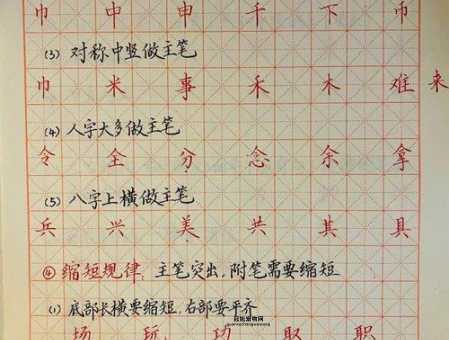 巾 中 申 千 下 币
(3) 对称中竖做主笔
巾 米 事 禾 木 难 来
(4) 人字大多做主笔
令 全 分 念 余 拿
(5) 八字上横做主笔
兵 兴 美 共 其 具
④ 缩短规律: 主笔突出,附笔需要缩短
(1) 底部长横要缩短,右部要平齐
场 玩 功 取 职